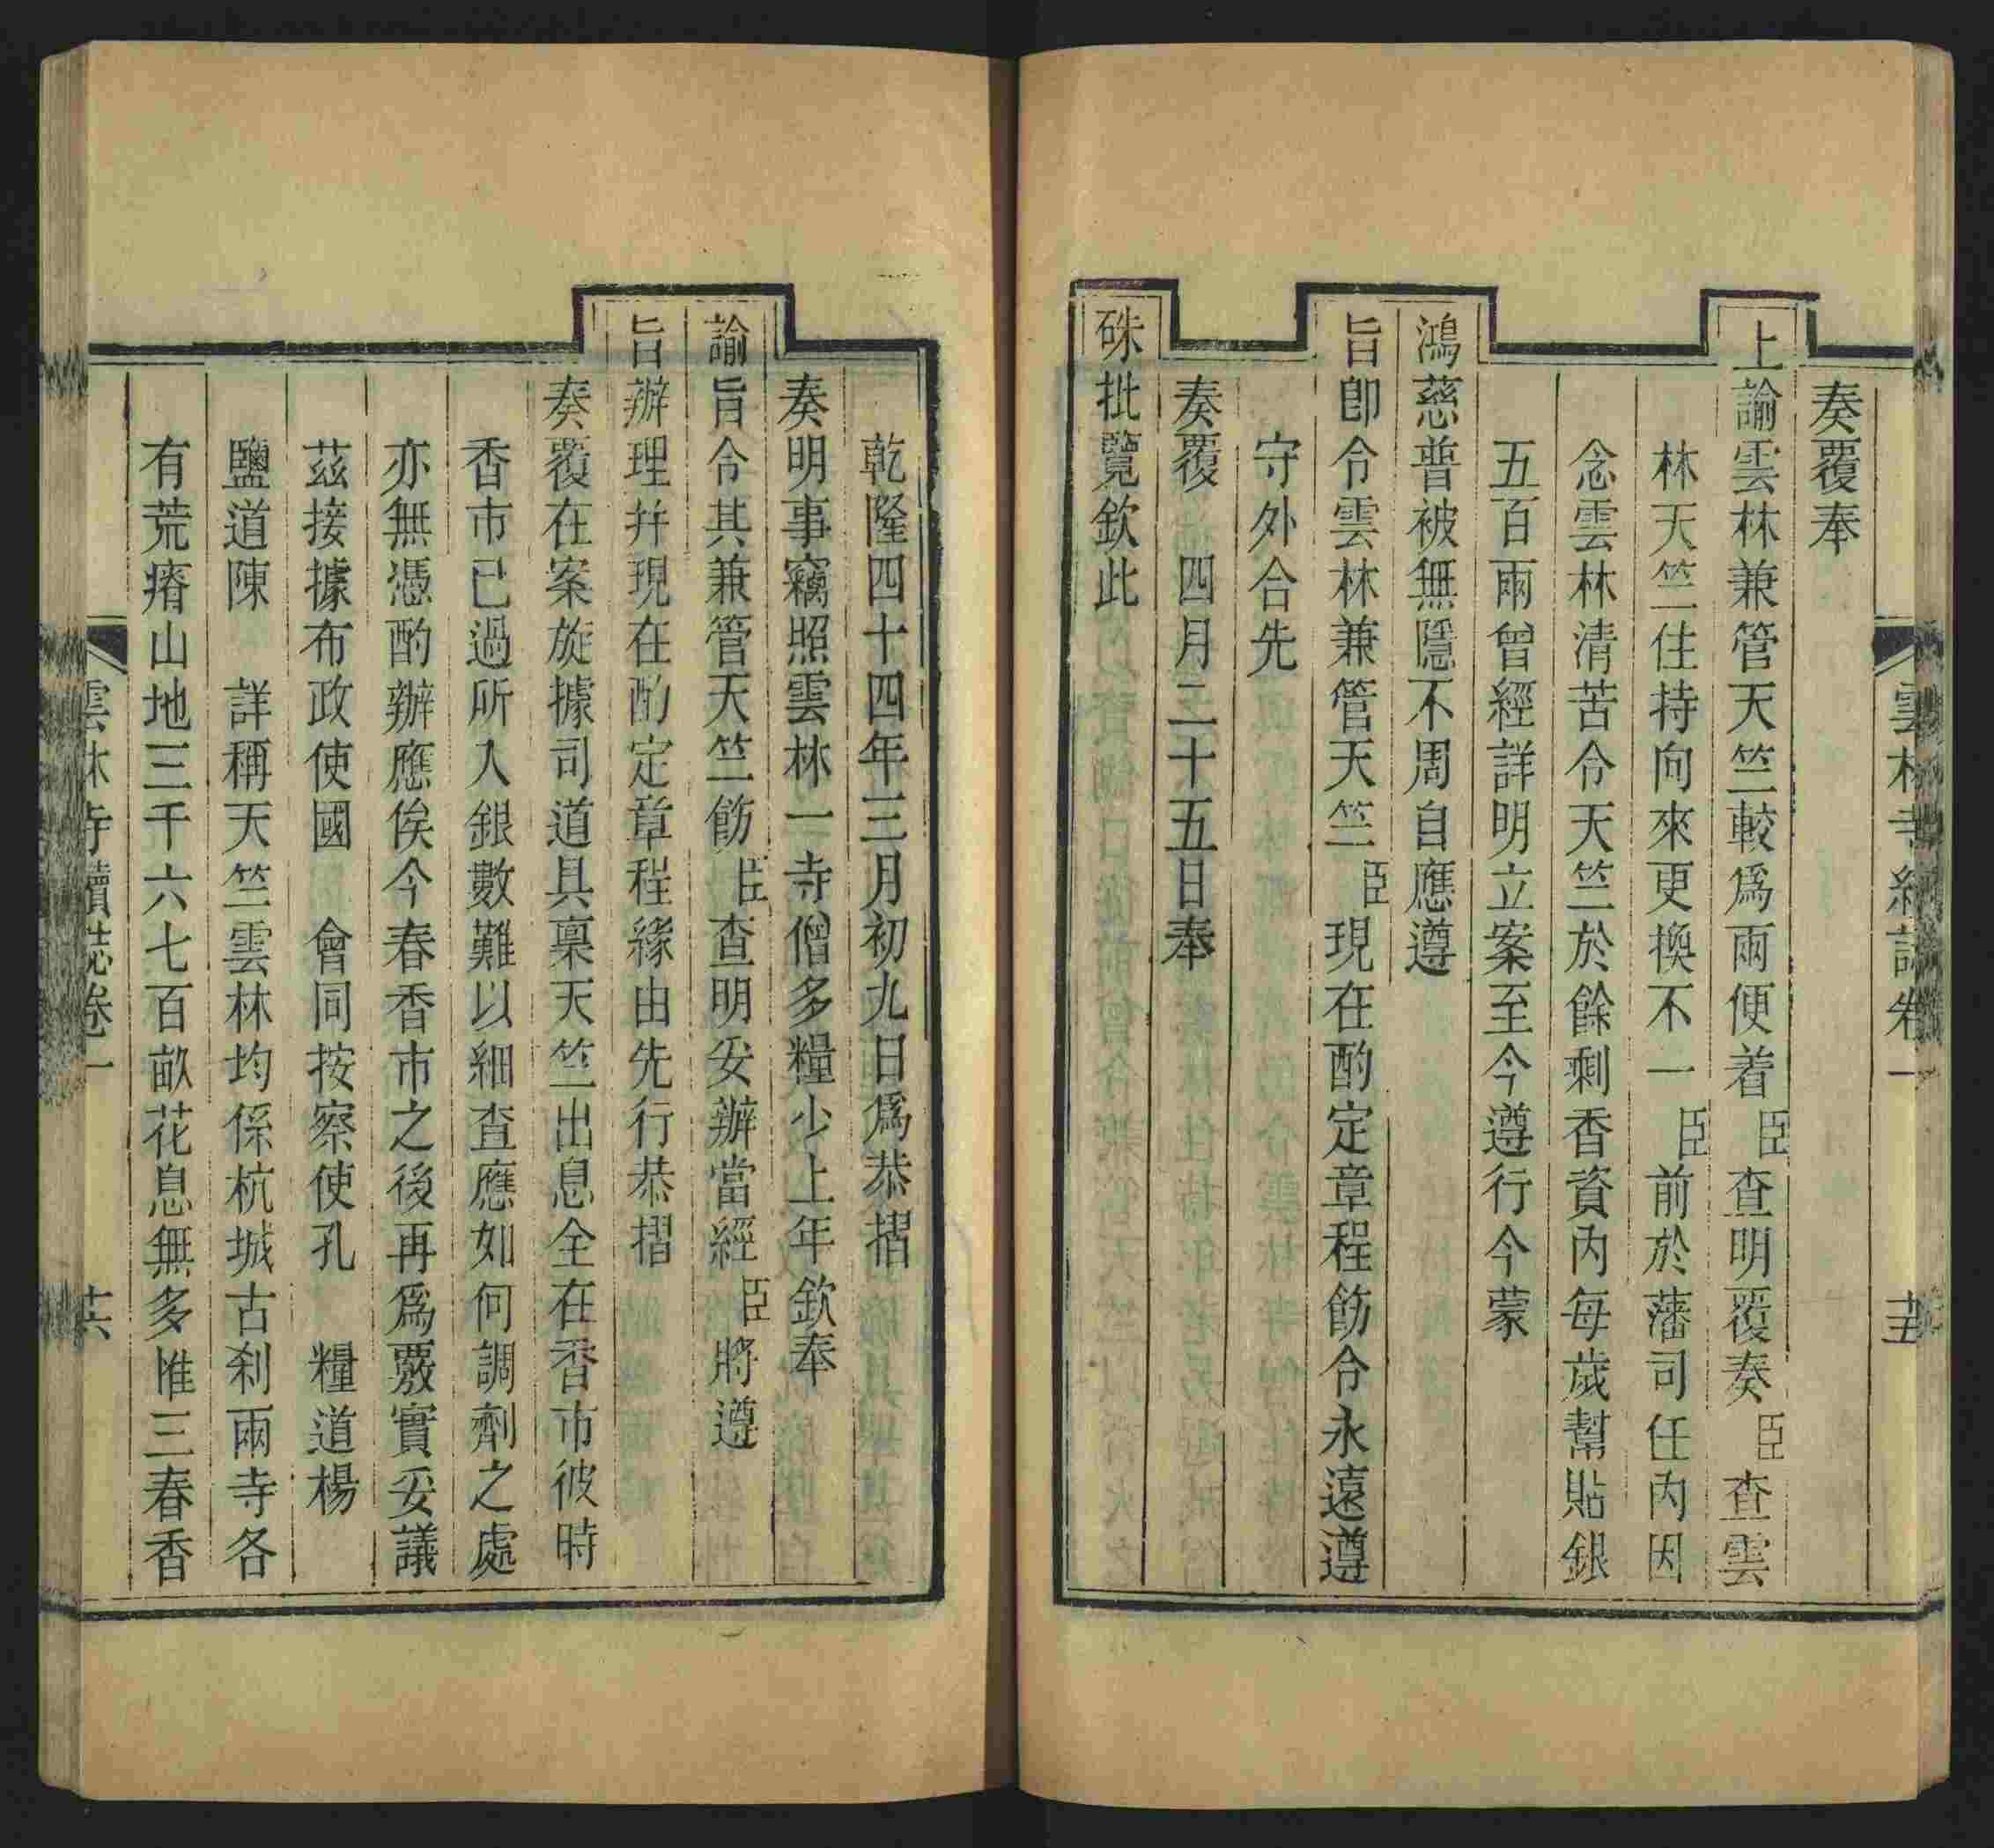 奏覆奉
上諭雲林兼管天竺較爲兩便着臣查明覆奏臣查雲
林天竺住持向來更換不一臣前於藩司任内因
念雲林清苦令天竺於餘剩香資内每歲幫貼銀
五百兩曾經詳明立案至今遵行今蒙
鴻慈普被無隱不周自應遵
旨卽令雲林兼管天竺臣現在酌定章程飭令永遠遵
守外合先
奏覆 四月二十五日奉
硃批覽欽此
乾隆四十四年三月初九日爲恭摺
奏明事竊照雲林一寺僧多糧少上年欽奉
諭旨令其兼管天竺飭臣查明妥辦當經臣將遵
旨辦理并現在酌定章程緣由先行恭摺
奏覆在案旋據司道具稟天竺出息全在香市彼時
香市已過所入銀數難以細查應如何調劑之處
亦無憑酌辦應俟今春香市之後再爲覈實妥議
茲接據布政使國 會同按察使孔 糧道楊
鹽道陳 詳稱天竺雲林均係杭城古刹兩寺各
有荒瘠山地三千六七百畝花息無多惟三春香
雲林寺續誌卷一